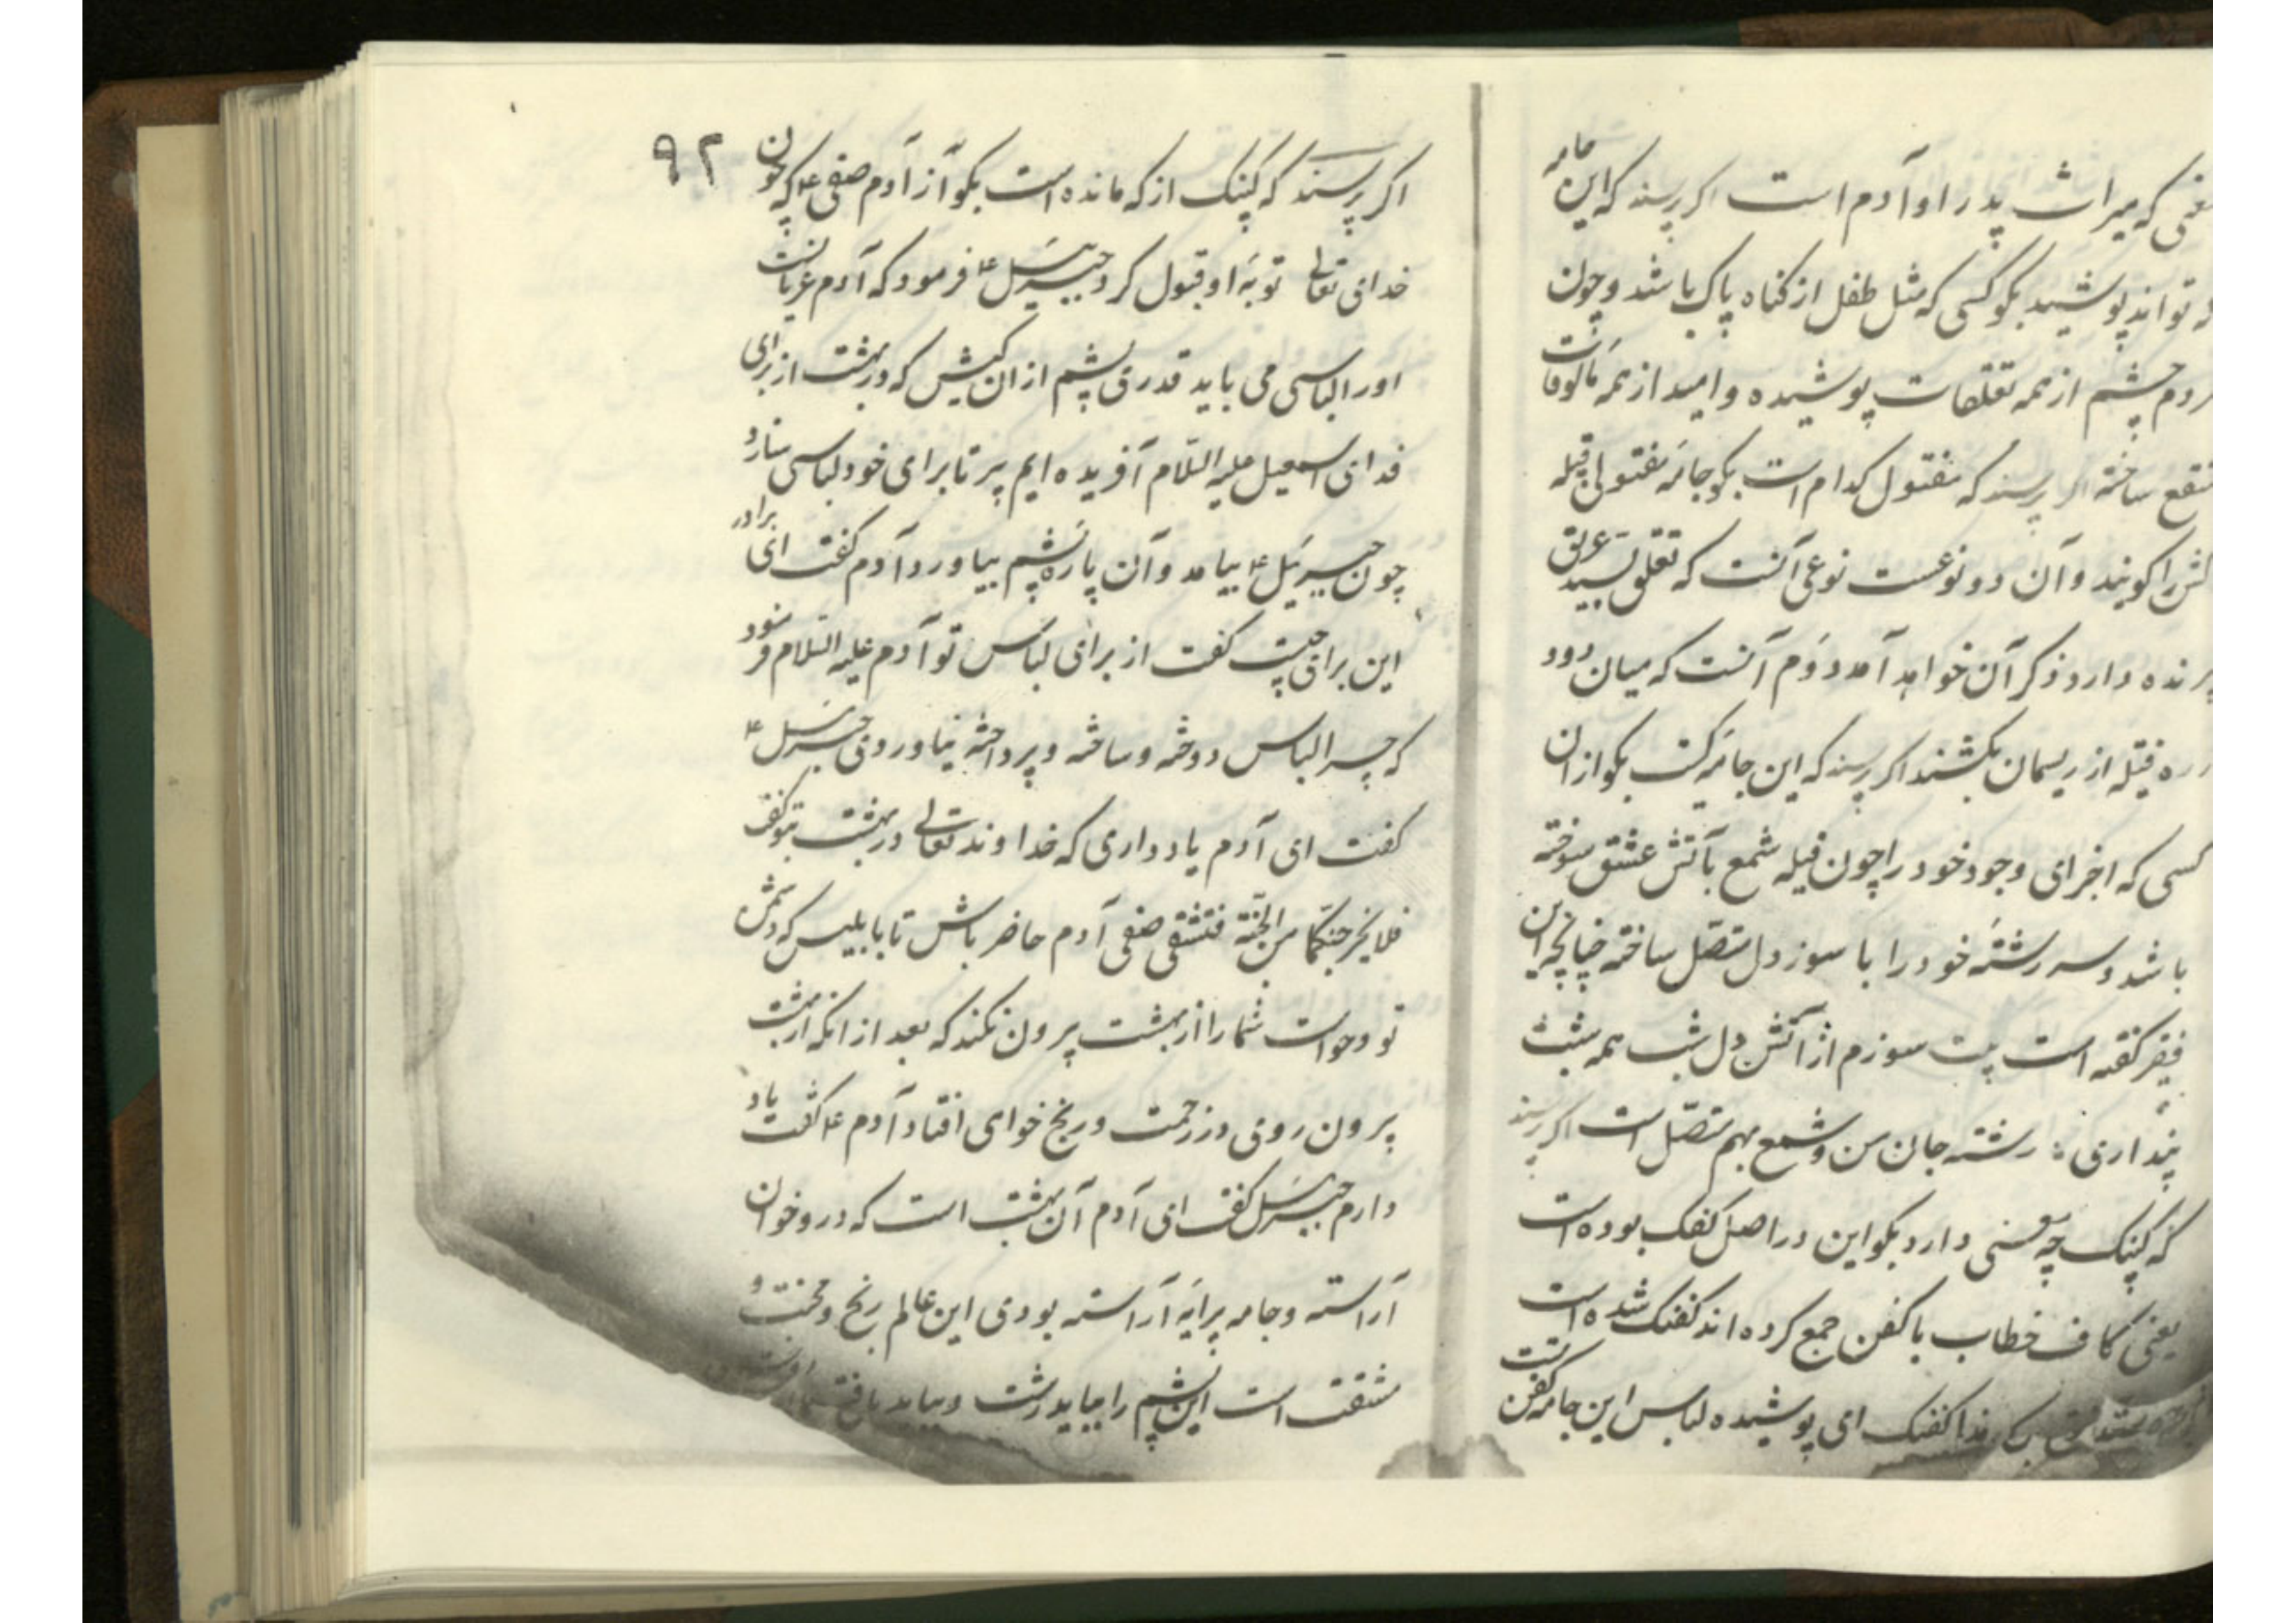 یعنی که میراث پدر او آدم است اگر پرسند که این جامه
که تواند پوشید بگو کسی که مثل طفل از کناه پاک باشد و چون
مردم چشم از همه تعلقات پوشیده و امید از همه مألوفات
منقطع ساخته اگر پرسند که مفتول کدام است بگو جامهٔ مفتولی فتیله
را کویند و آن دو نوعست نوعی آنست که تعلق بسید
پرنده دارد و ذکر آن خواهد آمد دوم آنست که میان دود
فتیله از ریسمان بکشند اگر پرسند که این جامه کیست بگو از ان
کسی که اجزای وجود خود را چون فتیله شمع بآتش عشق سوخته
باشد و سر رشته خود را با سوز دل متصل ساخته چنانچه این
فقیر گفته است بیت سوزم از آتش دل شب همه شب
پنداری : رشته جان من و شمع بهم متصل است اگر پرسند
که کپنک چه معنی دارد بگو این در اصل کفنک بوده است
یعنی کاف خطاب با کفن جمع کرده اند کفنک شده است
کفنک ای پوشیده لباس این جامه کفن تست
۹۲
اگر پرسند که کپنک از که مانده است بگو از آدم صفی ع م که چون
خدای تعالی توبهٔ او قبول کرد جبرئیل ع را فرمود که آدم عریانست
او را لباسی می باید قدری پشم از ان کبش که در بهشت از برای
فدای اسمعیل علیه السلام آفریده ایم ببر تا برای خود لباسی سازد
چون جبرئیل ع بیامد و آن پاره پشم بیاورد آدم کفت ای برادر
این برای چیست کفت از برای لباس تو آدم علیه السلام فرمود
که چرا لباس دوخته و ساخته و پرداخته نیاوردی جبرئیل ع
کفت ای آدم یاد داری که خداوند تعالی در بهشت بتو کفت
فلا یخرجنکما من الجنة فتشقی صفی آدم حاضر باش تا با بلیس که دشمن
تو و حواست شما را از بهشت بیرون نکند که بعد از انکه از بهشت
بیرون روی در زحمت و رنج خواهی افتاد آدم ع م کفت یاد
دارم جبرئیل کفت ای آدم آن بهشت است که در و خوان
آراسته و جامه پیرایه آراسته بودی این عالم رنج و محنت و
مشقت است این پشم را بباید رشت و بباید بافت